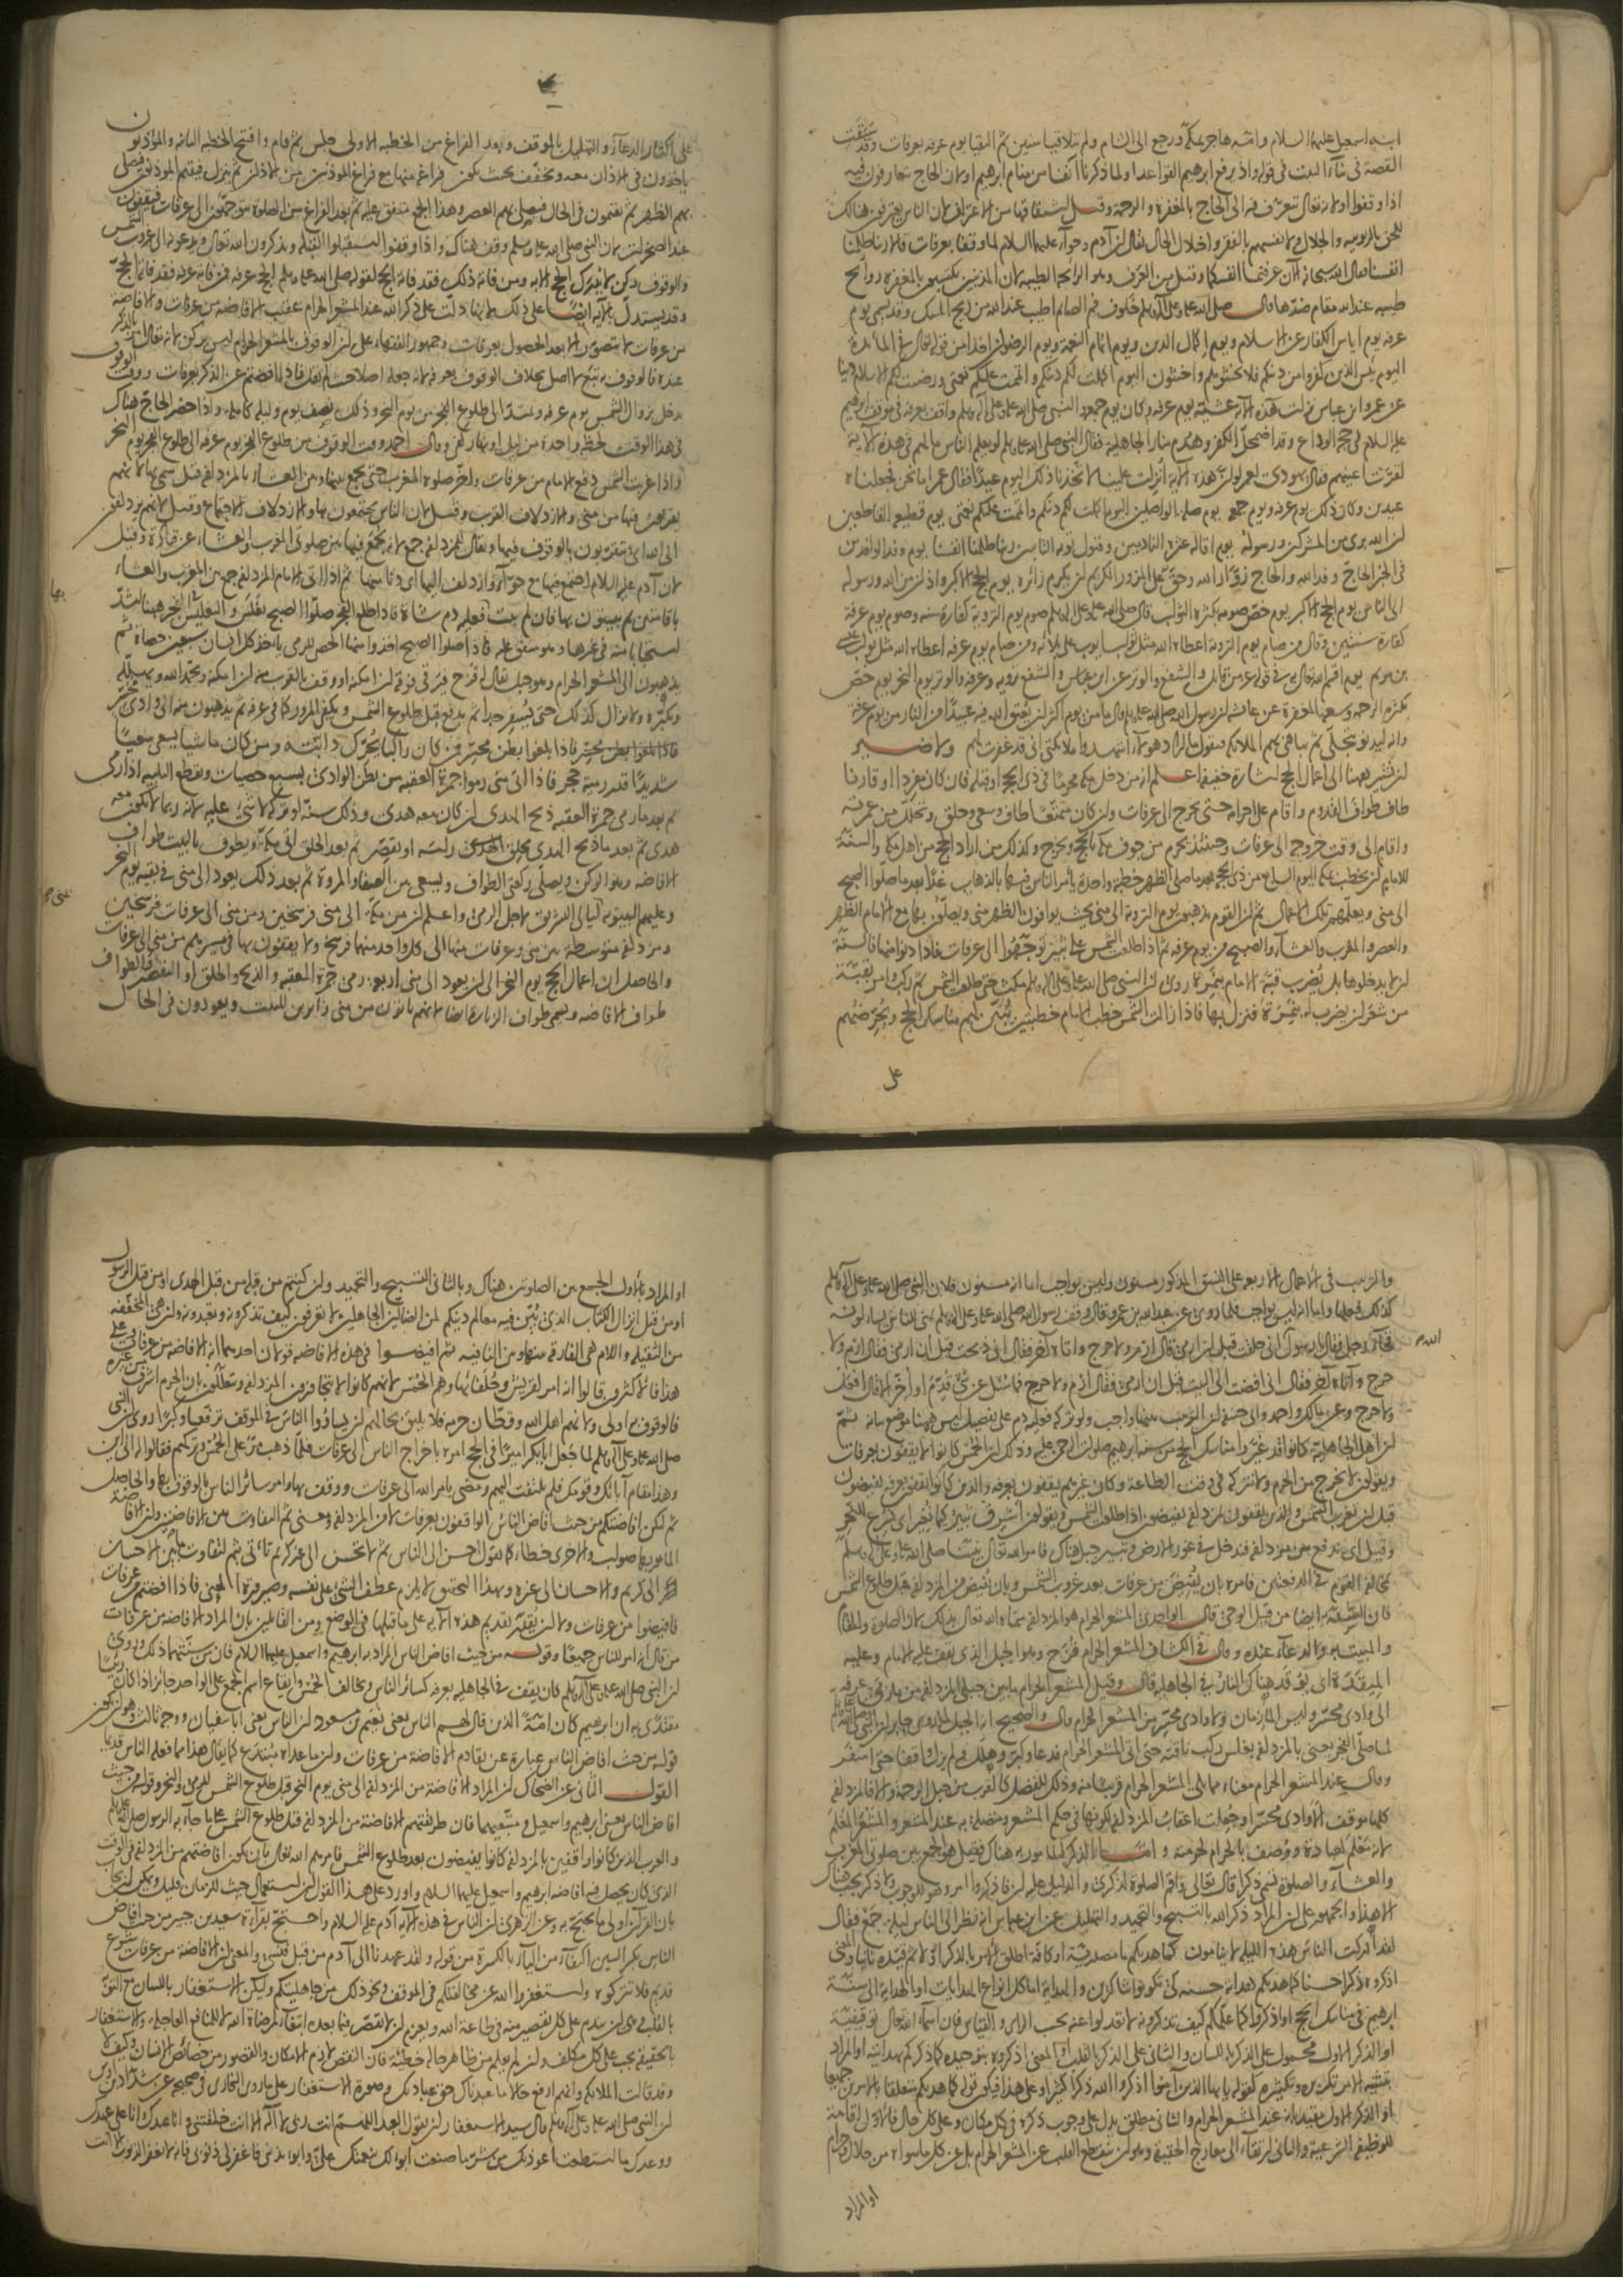 ابنه اسمعيل عليهما السلام وامه هاجر بمكة ورجع الى الشام ولم يتلاقيا سنين ثم التقيا يوم عرفه بعرفات وقد سبقت
القصة في بناء البيت في قوله واذ يرفع ابرهيم القواعد اولما ذكرنا آنفا من منام ابرهيم اولان الحاج يتعارفون فيه
اذا وقفوا اولانه تعالى يتعرف فيه الى الحاج بالمغفرة والرحمة وقيل اشتقاقها من الاعتراف لان الناس يعترفون هنالك
للحق بالربوبيه والجلال ولانفسهم بالفقر واختلال الحال يقال ان آدم وحواء عليهما السلام لما وقفا بعرفات قالا ربنا ظلمنا
انفسنا فقال الله سبحانه الآن عرفتما انفسكما وقيل من العرف وهو الرائحه الطيبه لان المذنبين يكتسبون بالمغفرة روائح
طيبه عند الله مقام ضدها قال صلى الله عليه وعلى آله وسلم خلوف فم الصائم اطيب عند الله من ريح المسك وقد يسمى يوم
عرفه يوم اياس الكفار عن الاسلام ويوم اكمال الدين ويوم اتمام النعمة ويوم الرضوان اخذا من قوله تعالى في المائدة
اليوم يئس الذين كفروا من دينكم فلا تخشوهم واخشون اليوم اكملت لكم دينكم واتممت عليكم نعمتي ورضيت لكم الاسلام دينا
عن عمر وابن عباس نزلت هذه الآية عشية يوم عرفه وكان يوم جمعه والنبي صلى الله عليه وعلى آله وسلم واقف بعرفة في موقف ابرهيم
عليه السلام في حجة الوداع وقد اضمحل الكفر وهدم منار الجاهلية فقال النبي صلى الله عليه وسلم لو يعلم الناس ما لهم في هذه الآية
لقرت اعينهم فقال يهودي لعمر لو ان هذه الآية انزلت علينا لاتخذنا ذلك اليوم عيدا فقال عمر اما نحن فجعلناه
عيدين وكان ذلك يوم عرفه ويوم جمعه يوم صلة الواصلين اليوم اكملت لكم دينكم واتممت عليكم نعمتي يوم قطيعة القاطعين
ان الله بريء من المشركين ورسوله يوم اقالة عثرة النادمين وقبول توبة التائبين ربنا ظلمنا انفسنا يوم وفد الوافدين
في الخبر الحاج وفد الله والحاج زوار الله وحق على المزور الكريم ان يكرم زائره يوم الحج الاكبر واذان من الله ورسوله
الى الناس يوم الحج الاكبر يوم خص صومه بكثرة الثواب قال صلى الله عليه وعلى آله وسلم صوم يوم التروية كفارة سنه وصوم يوم عرفة
كفارة سنتين وقال من صام يوم التروية اعطاه الله مثل ثواب ايوب على بلائه ومن صام يوم عرفه اعطاه الله مثل ثواب عيسى
بن مريم يوم اقسم الله تعالى به في قوله عز من قائل والشفع والوتر عن ابن عباس والشفع تروية وعرفه والوتر يوم النحر يوم خص
بكثرة الرحمة وسعة المغفرة عن عائشه ان رسول الله صلى الله عليه وسلم قال ما من يوم اكثر ان يعتق الله فيه عبيدا من النار من يوم عرفه
وانه ليدنو يتجلى ثم يباهي بهم الملائكه فيقول ما اراد هؤلاء اشهدوا ملائكتي اني قد غفرت لهم ولا ضير
ان نشير ههنا الى اعمال الحج اشارة خفيفه اعلم انه من دخل مكه محرما في ذي الحجه او قبله فان كان مفردا او قارنا
طاف طواف القدوم واقام على احرامه حتى يخرج الى عرفات وان كان متمتعا طاف وسعى وحلق وتحلل من عمرته
واقام الى وقت خروجه الى عرفات وحينئذ يحرم من جوف مكه بالحج ويخرج وكذلك من اراد الحج من اهل مكه والسنة
للامام ان يخطب بمكة اليوم السابع من ذي الحجه بعد ما صلى الظهر خطبه واحدة يأمر الناس فيها بالذهاب غدا بعد ما صلوا الصبح
الى منى ويعلمهم تلك الاعمال ثم ان القوم يذهبون يوم التروية الى منى بحيث يوافون الظهر بمنى ويصلون بها مع الامام الظهر
والعصر والمغرب والعشاء والصبح من يوم عرفه ثم اذا طلعت الشمس على ثبير توجهوا الى عرفات فاذا دنوا منها فالسنة
ان لا يدخلوها بل يضرب قبة الامام بنمرة روي ان النبي صلى الله عليه وعلى آله وسلم مكث حتى طلعت الشمس ثم ركب وامر بقبة
من شعر ان يضرب له بنمرة فنزل بها فاذا زالت الشمس خطب الامام خطبتين يبين لهم مناسك الحج ويحرضهم
على
على اكثار الدعاء والتهليل بالموقف وبعد الفراغ من الخطبه الاولى جلس ثم قام وافتتح الخطبه الثانيه والمؤذنون
ياخذون في الاذان معه ويخفف بحيث يكون فراغه منها مع فراغ المؤذنين من الاذان ثم ينزل فيقيم المؤذنون فيصلي
بهم الظهر ثم يقيمون في الحال فيصلي بهم العصر وهذا الجمع متفق عليه ثم بعد الفراغ من الصلوة يتوجهون الى عرفات فيقفون
عند الصخرات لان النبي صلى الله عليه وسلم وقف هناك واذا وقفوا استقبلوا القبلة ويذكرون الله تعالى ويدعونه الى غروب الشمس
والوقوف ركن لا يدرك الحج الا به ومن فاته ذلك فقد فاته الحج لقوله صلى الله عليه وسلم الحج عرفه فمن فاته عرفه فقد فاته الحج
وقد يستدل بالآيه ايضا على ذلك لانها دلت على ذكر الله عند المشعر الحرام عقيب الافاضه من عرفات والافاضة
من عرفات لا تتصور الا بعد الحصول بعرفات وجمهور الفقهاء على ان الوقوف بالمشعر الحرام ليس بركن لانه تعالى امر بالذكر
عنده فالوقوف به تبع لا اصل بخلاف الوقوف بعرفه لانه جعله اصلا حيث لم يقل فاذا افضتم عن الذكر بعرفات ووقت الوقوف
يدخل بزوال الشمس يوم عرفه ويمتد الى طلوع الفجر من يوم النحر وذلك نصف يوم وليلة كامله واذا حضر الحاج هناك
في هذا الوقت لحظة واحدة من ليل او نهار كفى وقال احمد وقت الوقوف من طلوع الفجر يوم عرفه الى طلوع الفجر يوم النحر
واذا غربت الشمس دفع الامام من عرفات واخر صلوة المغرب حتى يجمع بينها وبين العشاء بالمزدلفه قيل سمي بها لانهم
يقربون فيها من منى والازدلاف القرب وقيل لان الناس يجتمعون بها والازدلاف الاجتماع وقيل لانهم يزدلفون
الى الله اي يتقربون بالوقوف فيها ويقال للمزدلفه جمع لانه يجمع فيها بين صلوتي المغرب والعشاء عن قتاكرة وقيل
لان آدم عليه السلام اجتمع فيها مع حواء وازدلف اليها اي دنا منها ثم اذا اتى الامام المزدلفه جمع بين المغرب والعشاء
باقامتين ثم يبيتون بها فان لم يبت فعليه دم شاة فاذا طلع الفجر صلوا الصبح بغلس والتغليس بالفجر ههنا اشد
استحبابا منه في غيرها وهو متفق عليه فاذا صلوا الصبح اخذوا منها الحصى للرمي ياخذ كل انسان سبعين حصاة ثم
يذهبون الى المشعر الحرام وهو جبل يقال له قزح فيرقى فوقه ان امكنه او وقف بالقرب منه ان لم يمكنه ويحمد الله ويهلله
ويكبره ولا يزال كذلك حتى يسفر جدا ثم يدفع قبل طلوع الشمس ويكفي المرور كما في عرفه ثم يذهبون منه الى وادي محسر
فاذا بلغوا بطن محسر فمن كان راكبا يحرك دابته ومن كان ماشيا يسعى سعيا
شديدا قدر رمية حجر فاذا اتى منى رموا جمرة العقبه من بطن الوادي بسبع حصيات ويقطع التلبيه اذا رمى
ثم بعد ما رمى جمرة العقبه ذبح الهدي ان كان معه هدي وذلك سنة لو تركه لا شيء عليه لانه ربما لا يكون معه
هدي ثم بعد ما ذبح الهدي يحلق راسه او يقصر ثم بعد الحلق اتى مكة ويطوف بالبيت طواف
الافاضه وهو الركن ويصلي ركعتي الطواف ويسعى بين الصفا والمروة ثم بعد ذلك يعود الى منى في بقية يوم النحر
وعليهم البيتوته ليالي التشريق لاجل الرمي واعلم ان من مكة الى منى فرسخين ومن منى الى عرفات فرسخين
ومزدلفه متوسطة بين منى وعرفات منها الى كل واحد منهما فرسخ ولا يقفون بها في مسيرهم من منى الى عرفات
والحاصل ان اعمال الحج يوم النحر الى ان يعود الى منى اربعة رمي جمرة العقبه والذبح والحلق او التقصير والطواف
طواف الافاضه ويسمى طواف الزيارة ايضا لانهم ياتون من منى زايرين للبيت ويعودون في الحال
والترتيب في الاعمال الاربعه على النسق المذكور مسنون وليس بواجب اما انه مسنون فلان النبي صلى الله عليه وعلى آله وسلم
كذلك فعلها واما انه ليس بواجب فلما روي عن عبد الله بن عمر وقال وقف رسول الله صلى الله عليه وعلى آله وسلم بمنى للناس يسألونه
فجاءه رجل فقال يا رسول الله اني حلقت قبل ان ارمي قال ارم ولا حرج واتاه آخر فقال اني ذبحت قبل ان ارمي فقال ارم ولا
حرج واتاه آخر فقال اني افضت الى البيت قبل ان ارمي فقال ارم ولا حرج فما سئل عن شيء قدم او اخر الا قال افعل
ولا حرج وعن مالك واحمد وابي حنيفه ان الترتيب بينها واجب ولو تركه فعليه دم على تفصيل ليس ههنا موضع بيانه ثم
ان اهل الجاهلية كانوا قد غيروا مناسك الحج عن سنة ابرهيم صلوات الرحمن عليه وذلك ان الحمس كانوا لا يقفون بعرفات
ويقولون لا نخرج من الحرم ولا نتركه في وقت الطاعة وكان غيرهم يقفون بعرفه والذين كانوا يقفون بعرفه يفيضون
قبل ان تغرب الشمس والذين يقفون بمزدلفه يفيضون اذا طلعت الشمس ويقولون اشرق ثبير كيما نغير اي نسرع للنحر
وقيل اي ندفع من مزدلفه فندخل في غور الارض وثبير جبل هناك فامر الله تعالى نبينا صلى الله عليه وعلى آله وسلم
بمخالفة القوم في الدفعتين فامره بان يفيض من عرفات بعد غروب الشمس وبان يفيض من المزدلفه قبل طلوع الشمس
فان السنة ايضا من قبل الوحي قال الواحدي المشعر الحرام هو المزدلفه سماه الله تعالى بذلك لان الصلوة والمقام
والمبيت به والدعاء عنده وقال في الكشاف المشعر الحرام قزح وهو الجبل الذي يقف عليه الامام وعليه
الميقدة اي يوقد هناك النار في الجاهلية قال وقيل المشعر الحرام ما بين جبلي المزدلفه من مأزمي عرفه
الى وادي محسر وليس المأزمان ولا وادي محسر من المشعر الحرام قال والصحيح انه الجبل لما روى جابر ان النبي صلى الله عليه وسلم
لما صلى الفجر يعني بالمزدلفه بغلس ركب ناقته حتى اتى المشعر الحرام فدعا وكبر وهلل ولم يزل واقفا حتى اسفر
وقال عند المشعر الحرام معناه مما يلي المشعر الحرام قريبا منه وذلك للفضل كالقرب من جبل الرحمة والا فالمزدلفه
كلها موقف الا وادي محسر او جعلت اعقاب المزدلفه لكونها في حكم المشعر ومتصلة به عند المشعر والمشعر المعلم
لانه معلم لعبادة ووصف بالحرام لحرمته واما الذكر المامور به هناك فقيل هو الجمع بين صلوتي المغرب
والعشاء والصلوة تسمى ذكرا قال تعالى واقم الصلوة لذكري والدليل عليه ان فاذكروا امر وهو للوجوب ولا ذكر يجب هناك
الا هذا والجمهور على ان المراد ذكر الله بالتسبيح والتحميد والتهليل عن ابن عباس انه نظر الى الناس ليلة جمع فقال
لقد ادركت الناس هذه الليلة لا ينامون كما هديكم ما مصدرية او كافة اطلق الامر بالذكر اولا ثم قيده ثانيا والمعنى
اذكروه ذكرا حسنا كما هديكم هداية حسنه كي تكونوا شاكرين والهداية اما كل انواع الهدايات او الهداية الى سنة
ابرهيم في مناسك الحج او اذكروه كما علمكم كيف تذكرونه لا تعدلوا عنه بحسب الرأي والقياس فان اسماء الله تعالى توقيفية
او الذكر الاول محمول على الذكر باللسان والثاني على الذكر بالقلب او المعنى اذكروه بتوحيده كما ذكركم بهدايته او المراد
بتثنية الامر تكريره وتكثيره كقوله يا ايها الذين آمنوا اذكروا الله ذكرا كثيرا وعلى هذا فيكون قوله كما هديكم متعلقا بالامرين جميعا
او الذكر الاول مقيد بانه عند المشعر الحرام والثاني مطلق يدل على وجوب ذكره في كل مكان وعلى كل حال فالاول اقامة
للوظيفه الشرعية والثاني ارتقاء الى معارج الحقيقة وهو ان ينقطع القلب عن المشعر الحرام بل عن كل ما سواه من حلال وحرام
او المراد
او المراد بالاول الجمع بين الصلوتين هناك وبالثاني التسبيح والتحميد وان كنتم من قبله من قبل الهدى او من قبل الرسول
او من قبل انزال الكتاب الذي بين فيه معالم دينكم لمن الضالين الجاهلين لا تعرفون كيف تذكرونه وتعبدونه وان هي المخففه
من الثقيله واللام هي الفارقة بينها وبين النافيه ثم افيضوا في هذه الافاضه قولان احدهما انه الافاضه من عرفات وعلى
هذا فالاكثرون قالوا انه امر لقريش وحلفائها وهم الحمس لانهم كانوا لا يتجاوزون المزدلفه ويتعللون بان الحرم اشرف من غيره
فالوقوف به اولى ولانهم اهل الله وقطان حرمه فلا يليق بحالهم ان يساووا الناس في الموقف ترفعا وكبرا روي ان النبي
صلى الله عليه وعلى آله وسلم لما جعل ابا بكر اميرا في الحج امره باخراج الناس الى عرفات فلما ذهب مر على الحمس وتركهم فقالوا له الى اين
وهذا مقام آبائك وقومك فلم يلتفت اليهم ومضى بامر الله الى عرفات ووقف بها وامر سائر الناس بالوقوف بها والحاصل
ثم لتكن افاضتكم من حيث افاض الناس الواقفون بعرفات لا من المزدلفه ومعنى ثم التفاوت بين الافاضتين وان الافاضة
المأمور بها صواب والاخرى خطأ كما تقول احسن الى الناس ثم لا تحسن الى غير كريم تأتي بثم لتفاوت ما بين الاحسان
الى كريم والاحسان الى غيره وبهذا التحقيق لا يلزم عطف الشيء على نفسه وصيرورة المعنى فاذا افضتم من عرفات
فافيضوا من عرفات ولا ان يفتقر بتقديم هذه الآية على ما قبلها في الوضع ومن القائلين بان المراد الافاضه من عرفات
من قال انه امر للناس جميعا وقوله من حيث افاض الناس المراد به ابراهيم واسمعيل عليهما السلام فان من سنتهما ذلك وروي
ان النبي صلى الله عليه وعلى آله وسلم كان يقف في الجاهليه بعرفه كسائر الناس ويخالف الحمس وايقاع اسم الجمع على الواحد جائز اذا كان رئيسا
مقتدى به ان ابرهيم كان امة الذين قال لهم الناس يعني نعيم بن مسعود ان الناس يعني ابا سفيان ووجه ثالث وهو ان يكون
قوله من حيث افاض الناس عبارة عن تقادم الافاضة من عرفات وان ما عداه مبتدع كما يقال هذا مما فعله الناس قديما
القول الثاني عن الضحاك ان المراد الافاضة من المزدلفه الى منى يوم النحر قبل طلوع الشمس للرمي والنحر وقوله من حيث
افاض الناس يعني ابرهيم واسمعيل ومتبعيهما فان طريقتهم الافاضة من المزدلفه قبل طلوع الشمس على ما جاء به الرسول صلى الله عليه وسلم
والعرب الذين كانوا واقفين بالمزدلفه كانوا يفيضون بعد طلوع الشمس فامرهم الله تعالى بان يكون افاضتهم من المزدلفه في الوقت
الذي كان يحصل فيه افاضه ابرهيم واسمعيل عليهما السلام واورد على هذا القول ان استعمال حيث للزمان قليل ويمكن ان يجاب
بان القرآن اولى ما يحتج به وعن الزهري ان الناس في هذه الآية آدم عليه السلام واحتج بقراءة سعيد بن جبير من حيث افاض
الناس بكسر السين اكتفاء من الياء بالكسرة من قوله ولقد عهدنا الى آدم من قبل فنسي والمعنى ان الافاضة من عرفات شرع
قديم فلا تتركوه واستغفروا الله عن مخالفتكم في الموقف ونحو ذلك من جاهليتكم وليكن الاستغفار باللسان مع التوبة
بالقلب وهي ان يندم على كل تقصير منه في طاعة الله ويعزم ان لا يقصر فيما بعد ابتغاء لمرضاة الله لا للمنافع العاجله والاستغفار
بالحقيقه يجب على كل مكلف وان لم يعلم من ظاهر حاله خطيئة فان النقص لازم الامكان والقصور من خصائص الانسان وكيف لا
وقد قالت الملائكه وانهم ارفع حالا ما عبدناك حق عبادتك وصورة الاستغفار على ما روى البخاري في صحيحه عن شداد بن اوس
ان النبي صلى الله عليه وعلى آله وسلم قال سيد الاستغفار ان يقول العبد اللهم انت ربي لا اله الا انت خلقتني وانا عبدك وانا على عهدك
ووعدك ما استطعت اعوذ بك من شر ما صنعت ابوء لك بنعمتك علي وابوء بذنبي فاغفر لي ذنوبي فانه لا يغفر الذنوب الا انت